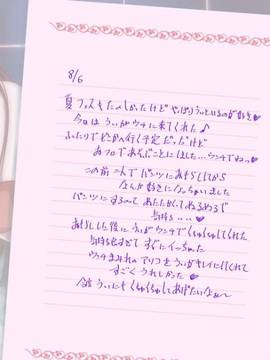 8/6
夏フェスもたのしかったけど やっぱりうぃといるのが好き♥
今日は うぃがウチに来てくれた♪
ふたりでどこかへ行く予定だったけど
おフロであそぶことにした…ウンチでねっ♥
この前 こんで パンツにおもらししてから
なんか好きになっちゃいました
パンツにするのって あたたかくてぬるぬるで
気持ち…♥
おもらしした後に うぃがウンチでくちゅくちゅしてくれた
気持ち良すぎて すぐにイっちゃった
ウンチまみれのアリフを うぃがキレイにしてくれて
すごくうれしかった♥
今度 うぃにもくちゅくちゅしてあげたいなぁ〜